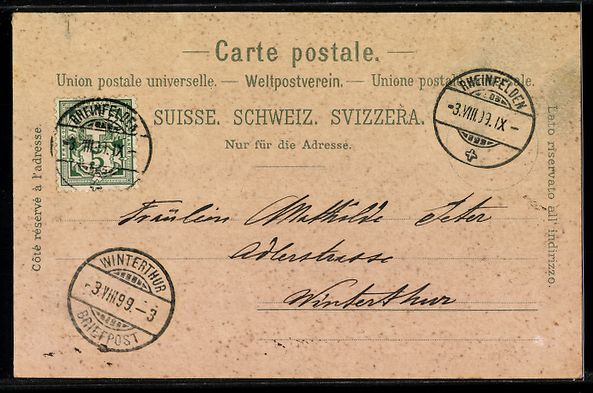 — Carte postale. —
Union postale universelle. — Weltpostverein. — Unione postale universale.
SUISSE. SCHWEIZ. SVIZZERA.
Nur für die Adresse.
Côté réservé à l'adresse.
Lato riservato all' indirizzo.
RHEINFELDEN
5
RHEINFELDEN
-3.VIII.99.IX-
Fräulein Mathilde Jeter
Adlerstrasse
Winterthur
WINTERTHUR
-3.VIII.99.-3
BRIEFPOST